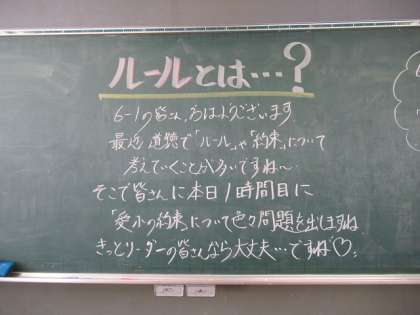 ルールとは…?
6-1の皆さん、おはようございます
最近、道徳で「ルール」や「約束」について
考えていくことが多いですね〜
そこで皆さんに本日1時間目に
「愛小の約束」について色々問題を出しますね
きっとリーダーの皆さんなら大丈夫…ですね♡。